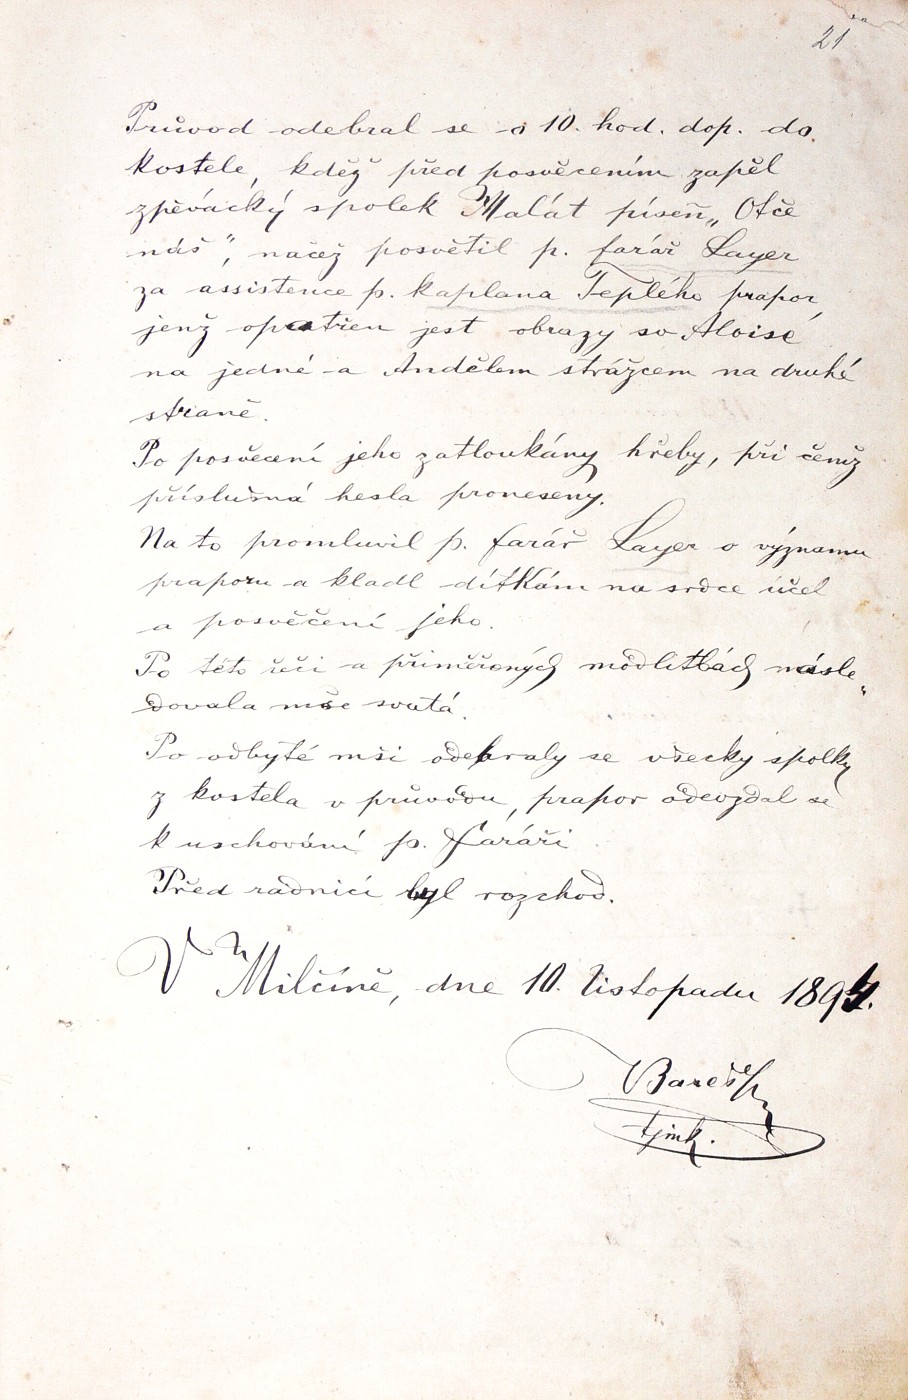 21
Průvod odebral se o 10. hod. dop. do
kostele, kděž před posvěcením zapěl
zpěvácký spolek Malát píseň „Otče
náš“, načež posvětil p. farář Layer
za assistence p. kaplana Teplého prapor,
jenž opatřen jest obrazy sv. Aloise
na jedné a Andělem strážcem na druhé
straně.
Po posvěcení jeho zatloukány hřeby, při čemž
příslušná hesla proneseny.
Na to promluvil p. farář Layer o významu
praporu a kladl dítkám na srdce účel
a posvěčení jeho.
Po této řeči a přiměřených modlitbách násle„
dovala mše svatá.
Po odbyté mši odebraly se všecky spolky
z kostela v průvodu, prapor odevzdal se
k uschování p. faráři
Před radnicí byl rozchod.
V Milčíně, dne 10. listopadu 1894.
Bareš